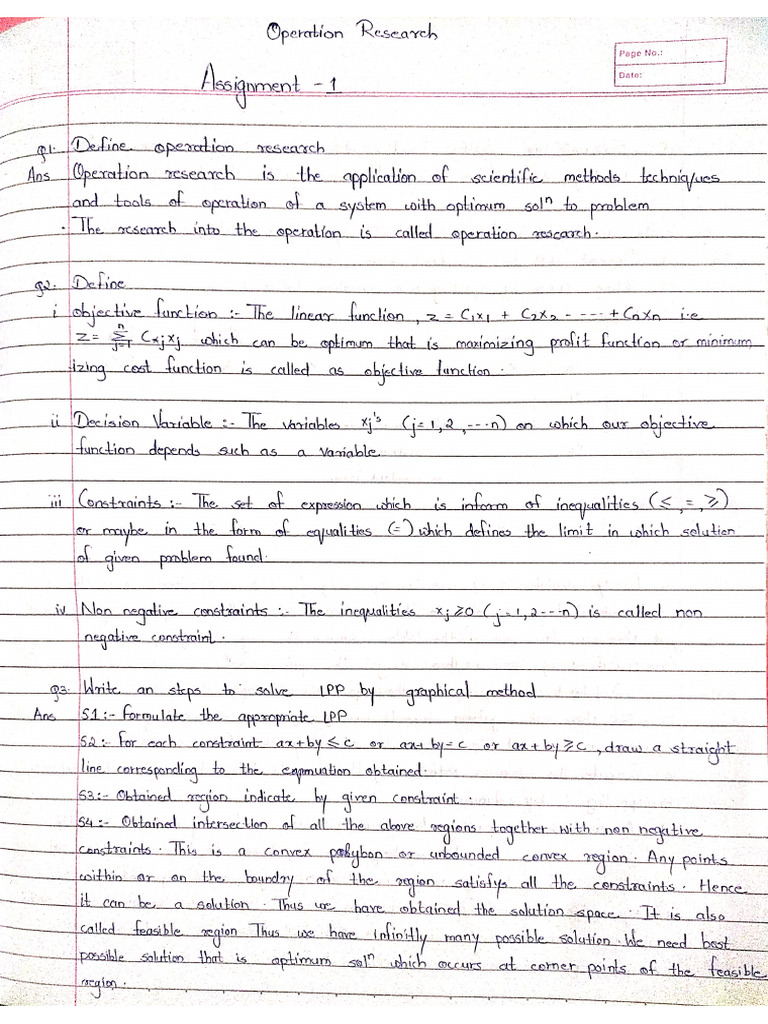 Operation Research
Page No.:
Date:
Assignment - 1
Q1. Define operation research
Ans Operation research is the application of scientific methods techniques
and tools of operation of a system with optimum solⁿ to problem
. The research into the operation is called operation research.
Q2. Define
i objective function :- The linear function, z = C₁x₁ + C₂x₂ - ---- + Cnxn i.e
z = n Σ j=1 Cxjxj which can be optimum that is maximizing profit function or minimum
izing cost function is called as objective function.
ii Decision Variable :- The variables xj's (j=1,2,---n) on which our objective
function depends such as a variable
iii Constraints :- The set of expression which is inform of inequalities (≤,=,≥)
or maybe in the form of equalities (=) which defines the limit in which solution
of given problem found.
iv Non negative constraints :- The inequalities xj≥0 (j=1,2---n) is called non
negative constraint.
Q3. Write an steps to solve LPP by graphical method
Ans S1:- Formulate the appropriate LPP
S2:- For each constraint ax+by ≤ c or ax+by=c or ax+by ≥ c, draw a straight
line corresponding to the obtained.
S3:- Obtained region indicate by given constraint.
S4:- Obtained intersection of all the above regions together with non negative
constraints. This is a convex or unbounded convex region. Any points
within or on the boundry of the region satisfys all the constraints. Hence
it can be a solution. Thus we have obtained the solution space. It is also
called feasible region Thus we have infinitly many possible solution. We need best
possible solution that is optimum solⁿ which occurs at corner points of the feasible
region.